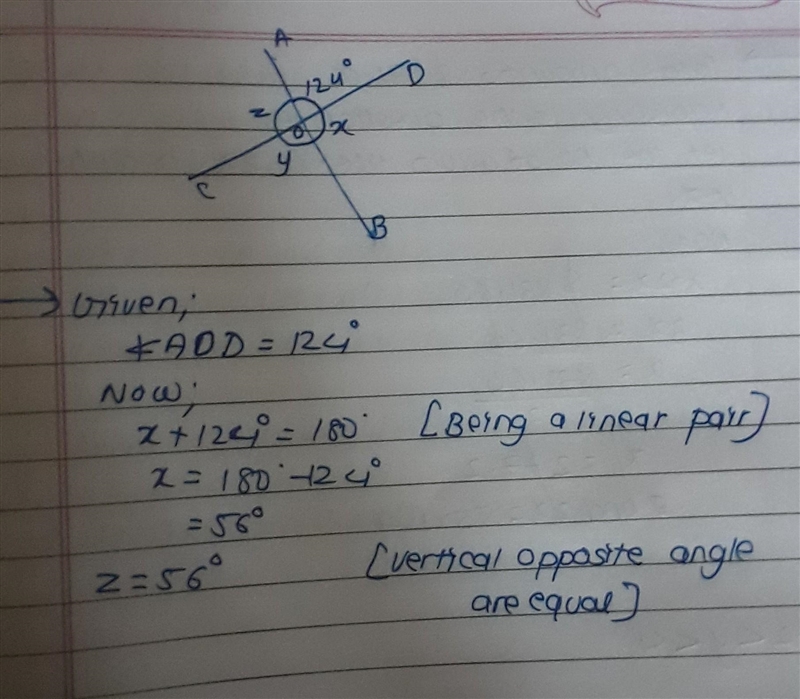 A
124°
D
z
o
x
y
C
B
→ Given;
∡AOD = 124°
Now;
x + 124° = 180° [Being a linear pair]
x = 180° - 124°
= 56°
z = 56° [vertical opposite angle
are equal]